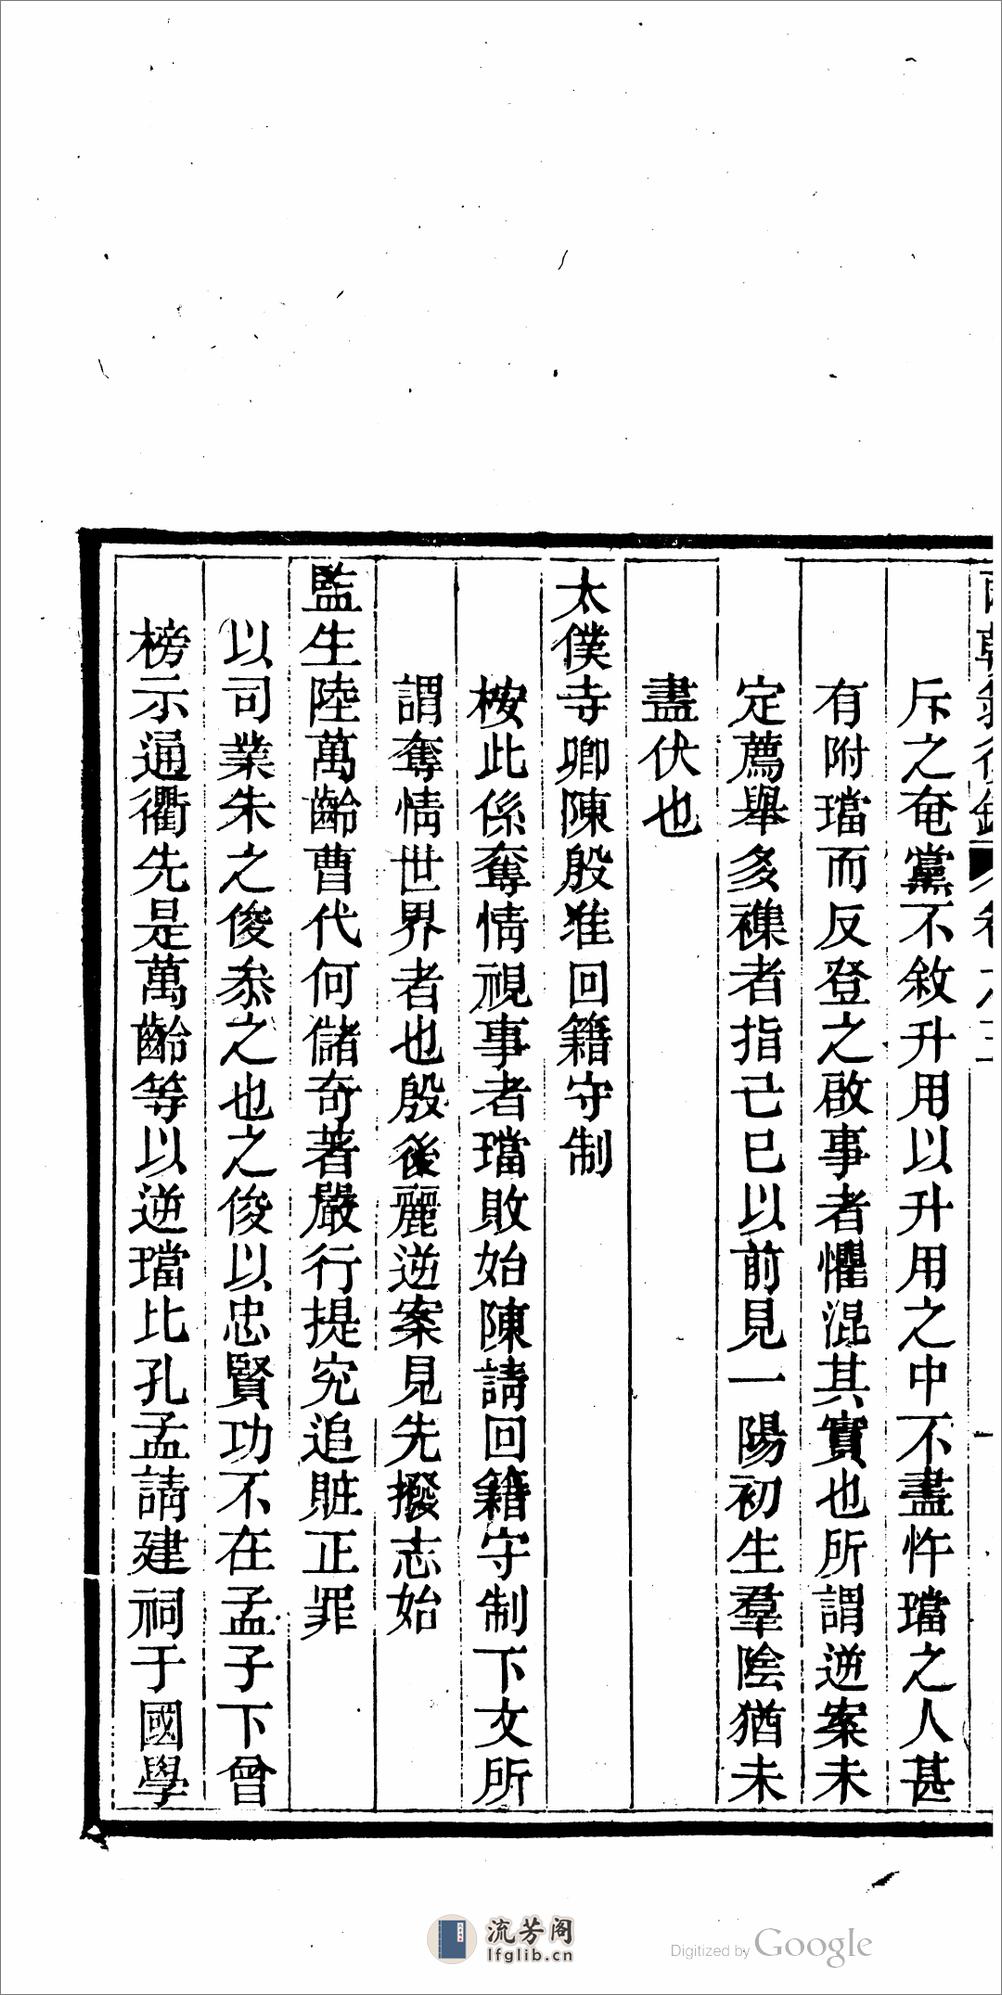 斥之奄黨不敘升用以升用之中不盡忤璫之人甚
有附璫而反登之啟事者懼混其實也所謂逆案未
定薦舉多襍者指己巳以前見一陽初生羣陰猶未
盡伏也
太僕寺卿陳殷准回籍守制
桉此係奪情視事者璫敗始陳請回籍守制下文所
謂奪情世界者也殷後麗逆案見先撥志始
監生陸萬齡曹代何儲奇著嚴行提究追贓正罪
以司業朱之俊叅之也之俊以忠賢功不在孟子下曾
榜示通衢先是萬齡等以逆璫比孔孟請建祠于國學
流芳阁
lfglib.cn
Digitized by Google